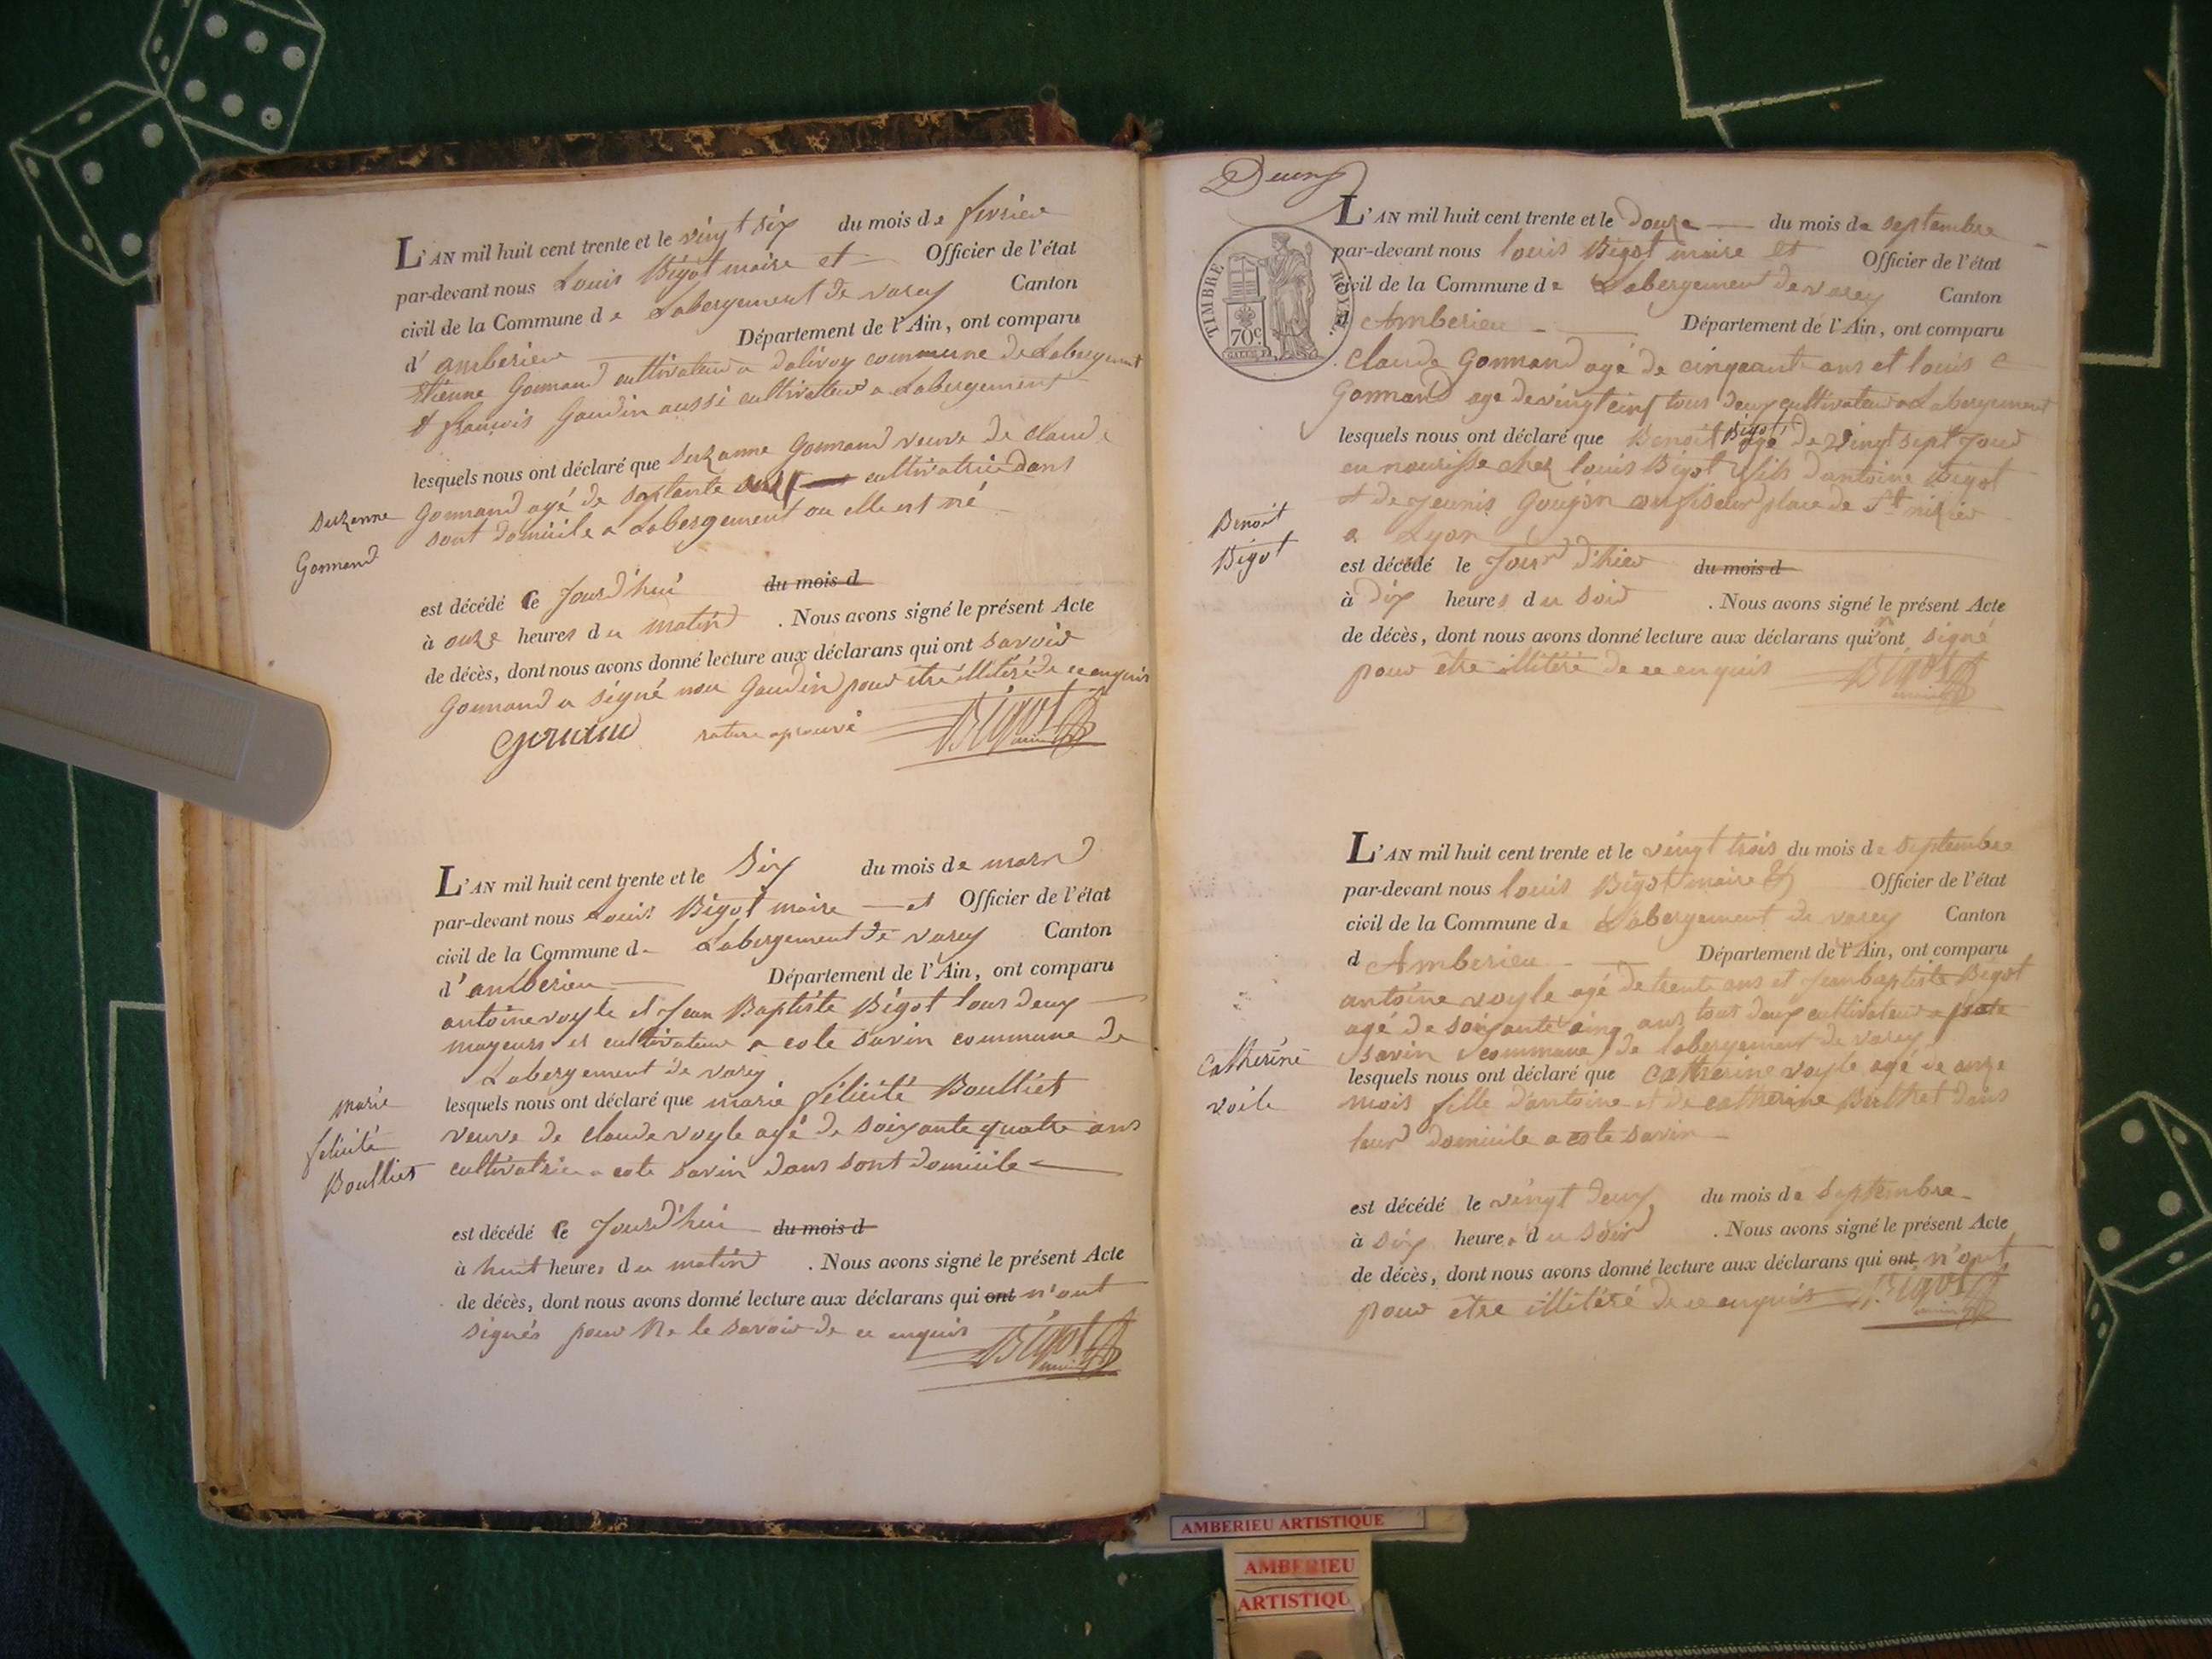 L'AN mil huit cent trente et le vingt six du mois de fevrier
par-devant nous Louis Bigot maire et Officier de l'état
civil de la Commune de Labergement de varey Canton
d'amberieu Département de l'Ain, ont comparu
Etienne Gonnand cultivateur a dalivoy commune de Labergement
& françois Gaudin aussi cultivateur a Labergement
lesquels nous ont déclaré que Suzanne Gonnand veuve de claude
Suzanne
Gonnand
Gonnand agé de soixtante cultivatrice dans
sont domicile a Labergement ou elle est né
est décédé ce Jourd'hui du mois d
à onze heures du matin . Nous avons signé le présent Acte
de décès, dont nous avons donné lecture aux déclarans qui ont savoir
Gonnand a signé non Gaudin pour etre illitéré de ce enquis
rature aprouvé Bigot
L'AN mil huit cent trente et le Six du mois de mars
par-devant nous Louis Bigot maire et Officier de l'état
civil de la Commune de Labergement de varey Canton
d'amberieu Département de l'Ain, ont comparu
antoine voyle et Jean Baptiste Bigot tous deux
mayeurs et cultivateur a cote savin commune de
Labergement de varey
lesquels nous ont déclaré que marie félicité Boulliet
marie
félicité
Boulliet
veuve de claude voyle agé de soixante quatre ans
cultivatrice a cote savin dans sont domicile
est décédé ce Jourd'hui du mois d
à huit heures du matin . Nous avons signé le présent Acte
de décès, dont nous avons donné lecture aux déclarans qui ont n'ont
signés pour Ne le savoir de ce enquis Bigot
Deux
TIMBRE ROYAL
70c.
L'AN mil huit cent trente et le douze du mois de septembre
par-devant nous louis Bigot maire et Officier de l'état
civil de la Commune de Labergement de varey Canton
d Amberieu Département de l'Ain, ont comparu
Claude Gonnand agé de cinquante ans et louis
Gonnand age de vingt cinq tous deux cultivateur a Labergement
lesquels nous ont déclaré que Benoit Bigot agé de vingt sept Jour
en nourisse chez louis Bigot fils d'antoine Bigot
Benoit
Bigot
& de Jeunis Goujon place de St nizier
a Lyon
est décédé le Jour d'hier du mois d
à dix heures du soir . Nous avons signé le présent Acte
de décès, dont nous avons donné lecture aux déclarans qui n'ont signé
pour être illitéré de ce enquis Bigot
L'AN mil huit cent trente et le vingt trois du mois de septembre
par-devant nous louis Bigot maire & Officier de l'état
civil de la Commune de Labergement de varey Canton
d Amberieu Département de l'Ain, ont comparu
antoine voyle agé de trente ans et Jean baptiste Bigot
agé de soixante cinq ans tous deux cultivateur a
savin commune de labergement de varey
lesquels nous ont déclaré que Catherine voyle agé de onze
Catherine
voile
mois fille d'antoine et de catherine Buthet dans
leur domicile a cote savin
est décédé le vingt deux du mois de septembre
à six heures du soir . Nous avons signé le présent Acte
de décès, dont nous avons donné lecture aux déclarans qui ont n'ont
pour être illitéré de ce enquis Bigot
AMBERIEU ARTISTIQUE
AMBERIEU
ARTISTIQU